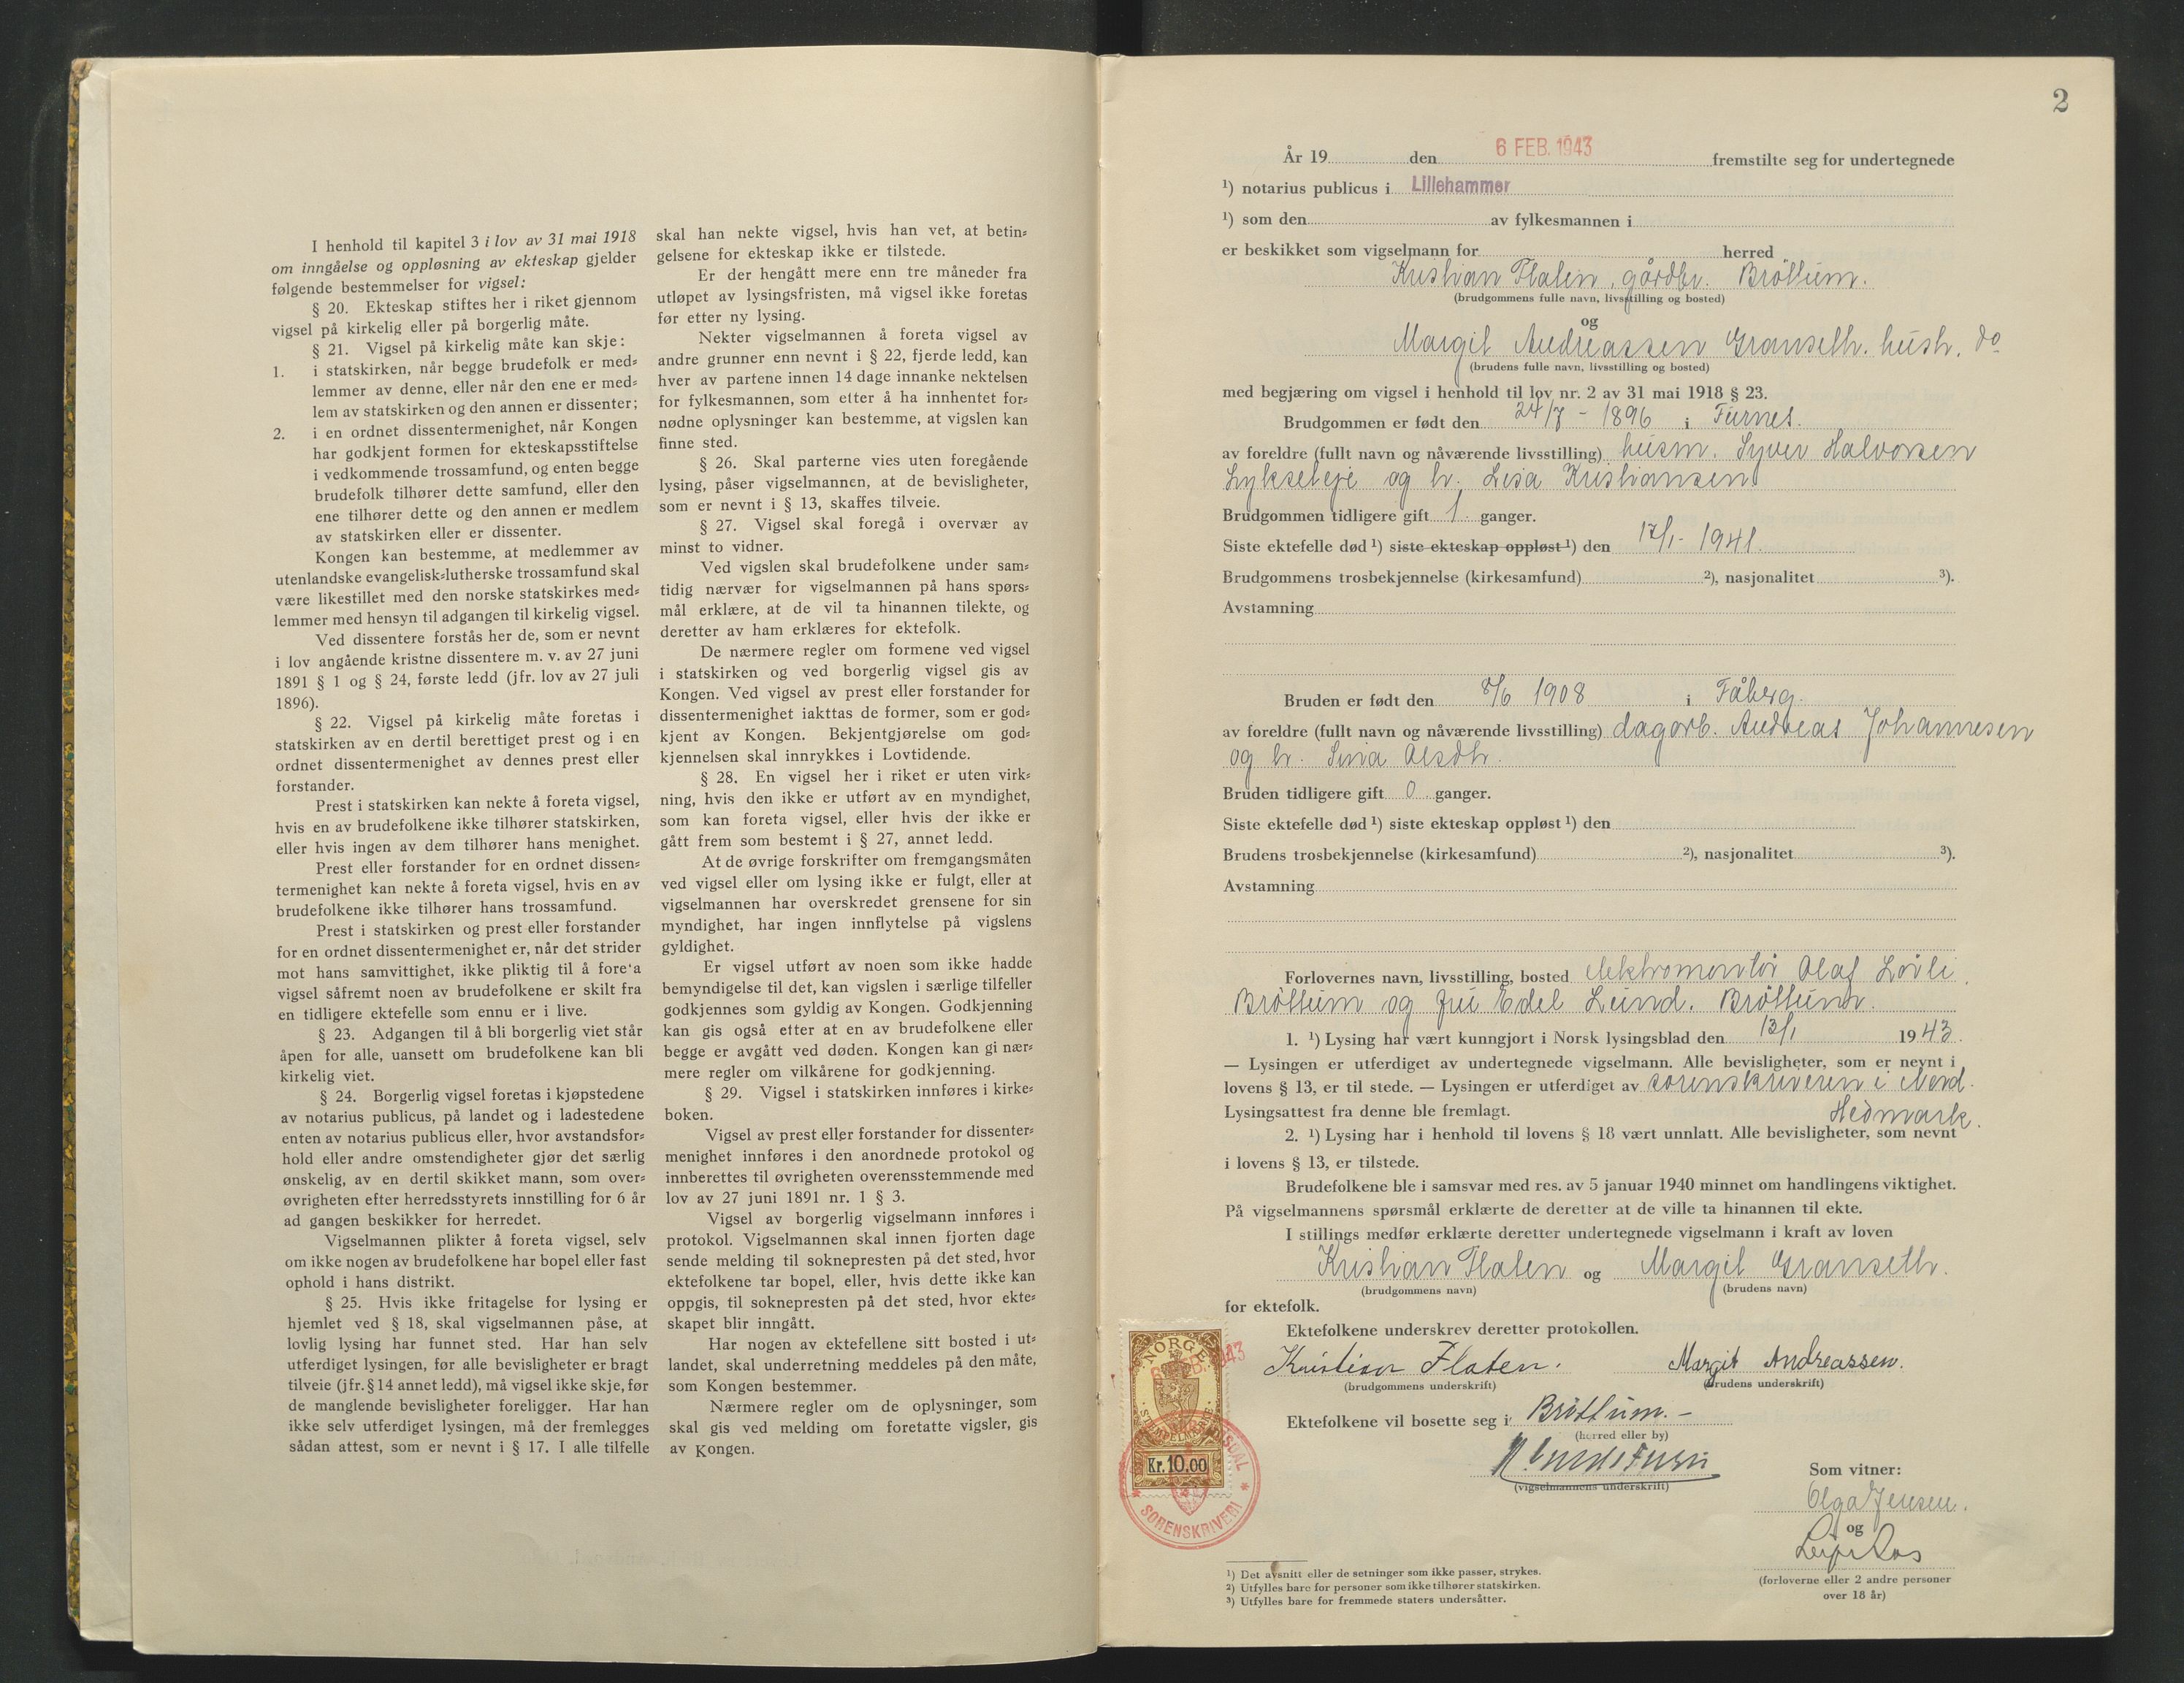 I henhold til kapitel 3 i lov av 31 mai 1918
om inngåelse og oppløsning av ekteskap gjelder
følgende bestemmelser for vigsel:
§ 20. Ekteskap stiftes her i riket gjennom
vigsel på kirkelig eller på borgerlig måte.
§ 21. Vigsel på kirkelig måte kan skje:
1. i statskirken, når begge brudefolk er med-
lemmer av denne, eller når den ene er med-
lem av statskirken og den annen er dissenter;
2. i en ordnet dissentermenighet, når Kongen
har godkjent formen for ekteskapsstiftelse
i vedkommende trossamfund, og enten begge
brudefolk tilhører dette samfund, eller den
ene tilhører dette og den annen er medlem
av statskirken eller er dissenter.
Kongen kan bestemme, at medlemmer av
utenlandske evangelisk-lutherske trossamfund skal
være likestillet med den norske statskirkes med-
lemmer med hensyn til adgangen til kirkelig vigsel.
Ved dissentere forstås her de, som er nevnt
i lov angående kristne dissentere m. v. av 27 juni
1891 § 1 og § 24, første ledd (jfr. lov av 27 juli
1896).
§ 22. Vigsel på kirkelig måte foretas i
statskirken av en dertil berettiget prest og i en
ordnet dissentermenighet av dennes prest eller
forstander.
Prest i statskirken kan nekte å foreta vigsel,
hvis en av brudefolkene ikke tilhører statskirken,
eller hvis ingen av dem tilhører hans menighet.
Prest eller forstander for en ordnet dissen-
termenighet kan nekte å foreta vigsel, hvis en av
brudefolkene ikke tilhører hans trossamfund.
Prest i statskirken og prest eller forstander
for en ordnet dissentermenighet er, når det strider
mot hans samvittighet, ikke pliktig til å fore'a
vigsel såfremt noen av brudefolkene er skilt fra
en tidligere ektefelle som ennu er i live.
§ 23. Adgangen til å bli borgerlig viet står
åpen for alle, uansett om brudefolkene kan bli
kirkelig viet.
§ 24. Borgerlig vigsel foretas i kjøpstedene
av notarius publicus, på landet og i ladestedene
enten av notarius publicus eller, hvor avstandsfor-
hold eller andre omstendigheter gjør det særlig
ønskelig, av en dertil skikket mann, som over-
øvrigheten efter herredsstyrets innstilling for 6 år
ad gangen beskikker for herredet.
Vigselmannen plikter å foreta vigsel, selv
om ikke nogen av brudefolkene har bopel eller fast
ophold i hans distrikt.
§ 25. Hvis ikke fritagelse for lysing er
hjemlet ved § 18, skal vigselmannen påse, at
lovlig lysing har funnet sted. Har han selv
utferdiget lysingen, før alle bevisligheter er bragt
tilveie (jfr. § 14 annet ledd), må vigsel ikke skje, før
de manglende bevisligheter foreligger. Har han
ikke selv utferdiget lysingen, må der fremlegges
sådan attest, som er nevnt i § 17. I alle tilfelle
skal han nekte vigsel, hvis han vet, at betin-
gelsene for ekteskap ikke er tilstede.
Er der hengått mere enn tre måneder fra
utløpet av lysingsfristen, må vigsel ikke foretas
før etter ny lysing.
Nekter vigselmannen å foreta vigsel av
andre grunner enn nevnt i § 22, fjerde ledd, kan
hver av partene innen 14 dage innanke nektelsen
for fylkesmannen, som etter å ha innhentet for-
nødne oplysninger kan bestemme, at vigslen kan
finne sted.
§ 26. Skal parterne vies uten foregående
lysing, påser vigselmannen, at de bevisligheter,
som er nevnt i § 13, skaffes tilveie.
§ 27. Vigsel skal foregå i overvær av
minst to vidner.
Ved vigslen skal brudefolkene under sam-
tidig nærvær for vigselmannen på hans spørs-
mål erklære, at de vil ta hinannen tilekte, og
deretter av ham erklæres for ektefolk.
De nærmere regler om formene ved vigsel
i statskirken og ved borgerlig vigsel gis av
Kongen. Ved vigsel av prest eller forstander for
dissentermenighet iakttas de former, som er god-
kjent av Kongen. Bekjentgjørelse om god-
kjennelsen skal innrykkes i Lovtidende.
§ 28. En vigsel her i riket er uten virk-
ning, hvis den ikke er utført av en myndighet,
som kan foreta vigsel, eller hvis der ikke er
gått frem som bestemt i § 27, annet ledd.
At de øvrige forskrifter om fremgangsmåten
ved vigsel eller om lysing ikke er fulgt, eller at
vigselmannen har overskredet grensene for sin
myndighet, har ingen innflytelse på vigslens
gyldighet.
Er vigsel utført av noen som ikke hadde
bemyndigelse til det, kan vigslen i særlige tilfeller
godkjennes som gyldig av Kongen. Godkjenning
kan gis også etter at en av brudefolkene eller
begge er avgått ved døden. Kongen kan gi nær-
mere regler om vilkårene for godkjenning.
§ 29. Vigsel i statskirken innføres i kirke-
boken.
Vigsel av prest eller forstander for dissenter-
menighet innføres i den anordnede protokol og
innberettes til øvrigheten overensstemmende med
lov av 27 juni 1891 nr. 1 § 3.
Vigsel av borgerlig vigselmann innføres i
protokol. Vigselmannen skal innen fjorten dage
sende melding til soknepresten på det sted, hvor
ektefolkene tar bopel, eller, hvis dette ikke kan
oppgis, til soknepresten på det sted, hvor ekte-
skapet blir inngått.
Har nogen av ektefellene sitt bosted i ut-
landet, skal underretning meddeles på den måte,
som Kongen bestemmer.
Nærmere regler om de oplysninger, som
skal gis ved melding om foretatte vigsler, gis
av Kongen.
2
År 19 den 6 FEB. 1943 fremstilte seg for undertegnede
1) notarius publicus i Lillehammer
1) som den av fylkesmannen i
er beskikket som vigselmann for herred
Kristian Flaten, gårdbr. Brøttum.
(brudgommens fulle navn, livsstilling og bosted)
og
Margit Andreassen Granseth. hush. do
(brudens fulle navn, livsstilling og bosted)
med begjæring om vigsel i henhold til lov nr. 2 av 31 mai 1918 § 23.
Brudgommen er født den 24/7 - 1896 i Furnes.
av foreldre (fullt navn og nåværende livsstilling) husm. Syver Halvorsen
Lykseteje og h. Lisa Kristiansen
Brudgommen tidligere gift 1. ganger.
Siste ektefelle død 1) siste ekteskap oppløst 1) den 17/1 - 1941.
Brudgommens trosbekjennelse (kirkesamfund) 2), nasjonalitet 3).
Avstamning
Bruden er født den 8/6 1908 i Fåberg.
av foreldre (fullt navn og nåværende livsstilling) dagarb. Andreas Johannesen
og h. Sina Olsdtr.
Bruden tidligere gift 0 ganger.
Siste ektefelle død 1) siste ekteskap oppløst 1) den
Brudens trosbekjennelse (kirkesamfund) 2), nasjonalitet 3).
Avstamning
Forlovernes navn, livsstilling, bosted elektromontør Olaf Løvli,
Brøttum og fru Edel Lund. Brøttum.
1. 1) Lysing har vært kunngjort i Norsk lysingsblad den 13/1 1943.
— Lysingen er utferdiget av undertegnede vigselmann. Alle bevisligheter, som er nevnt i
lovens § 13, er til stede. — Lysingen er utferdiget av sorenskriveren i Nord-
Lysingsattest fra denne ble fremlagt. Hedmark.
2. 1) Lysing har i henhold til lovens § 18 vært unnlatt. Alle bevisligheter, som nevnt
i lovens § 13, er tilstede.
Brudefolkene ble i samsvar med res. av 5 januar 1940 minnet om handlingens viktighet.
På vigselmannens spørsmål erklærte de deretter at de ville ta hinannen til ekte.
I stillings medfør erklærte deretter undertegnede vigselmann i kraft av loven
Kristian Flaten og Margit Granseth.
(brudgommens navn) (brudens navn)
for ektefolk.
Ektefolkene underskrev deretter protokollen.
Kristian Flaten. Margit Andreassen.
(brudgommens underskrift) (brudens underskrift)
Ektefolkene vil bosette seg i Brøttum. -
(herred eller by)
(vigselmannens underskrift)
Som vitner:
Olga Jensen.
og
(forloverne eller 2 andre personer
over 18 år)
NORGE
6 FEB. 1943
STEMPELMERKE
Kr. 10.00
SORENSKRIVERI
1) Det avsnitt eller de setninger som ikke passer, strykes.
2) Utfylles bare for personer som ikke tilhører statskirken.
3) Utfylles bare for fremmede staters undersåtter.